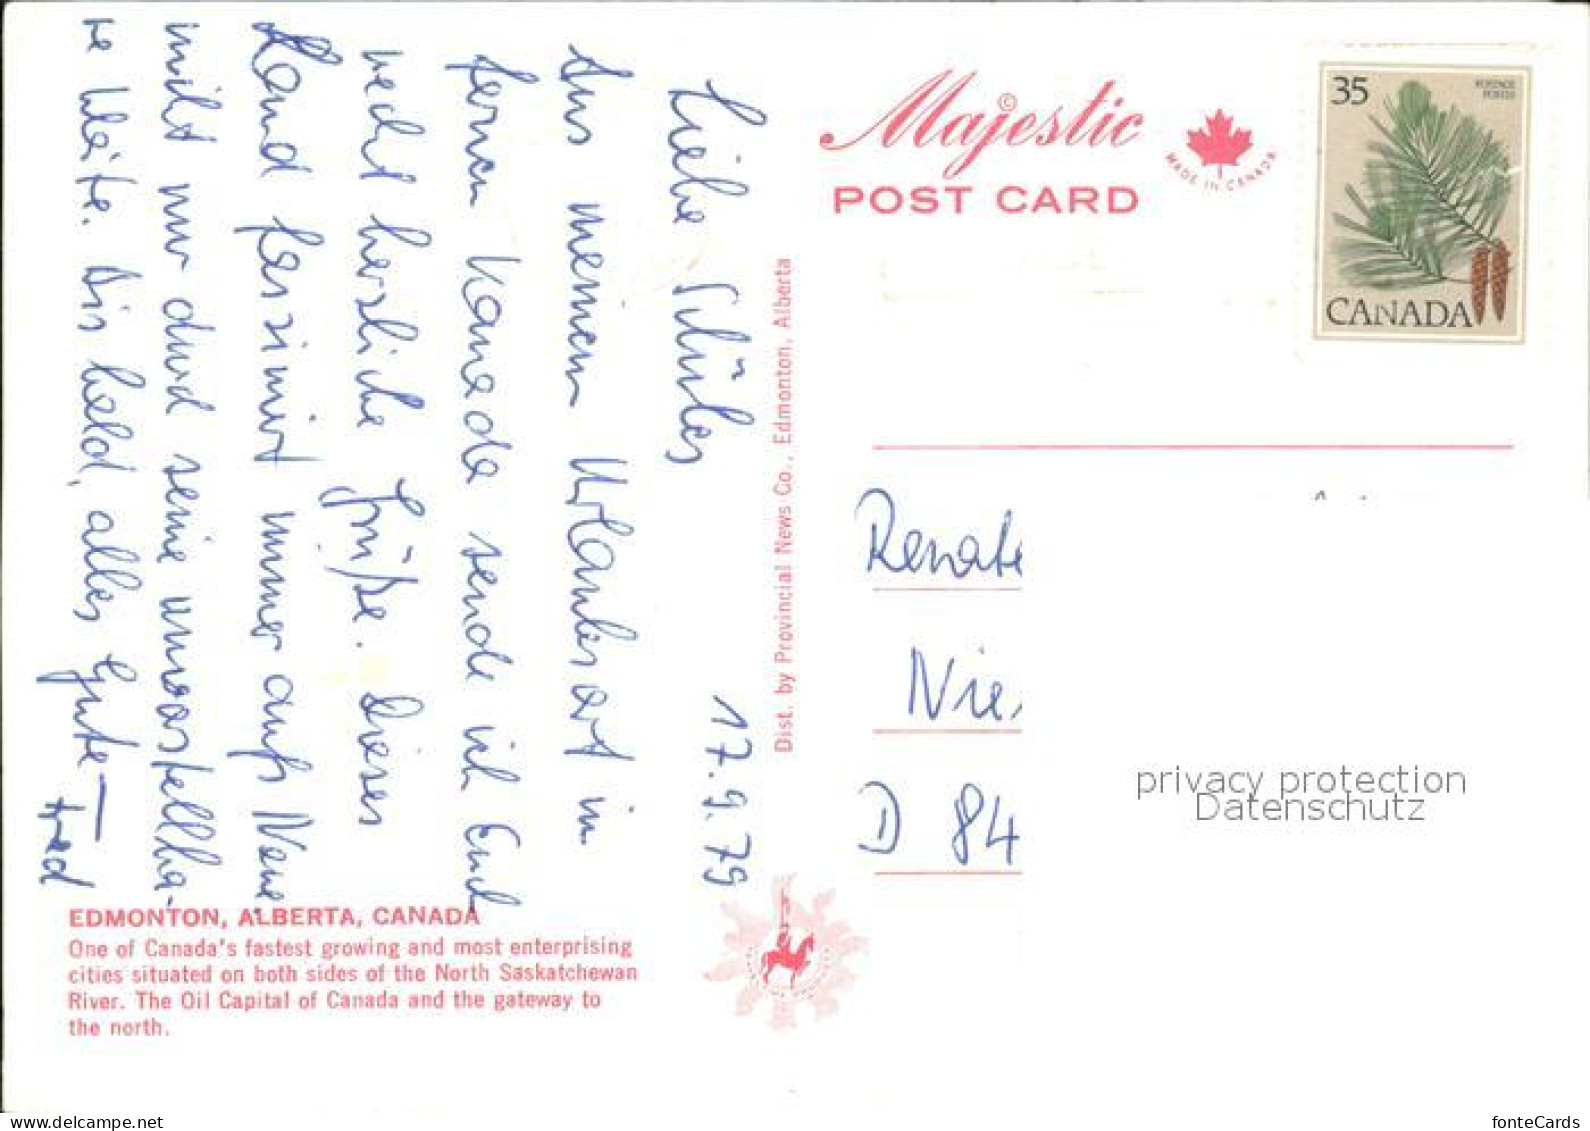 Majestic ©
POST CARD
MADE IN CANADA
35
POSTAGE
POSTES
CANADA
17.9.79
Liebe
Aus meinem Urlaubsort in
fernen Kanada sende ich Euch
recht herzliche Grüße. Dieses
Land fasziniert immer aufs Neue,
nur durch seine unvorstellba-
re Weite. Bis bald, alles Gute –
Fred
Dist. by Provincial News Co., Edmonton, Alberta
Renate
Nie
D 84
privacy protection
Datenschutz
EDMONTON, ALBERTA, CANADA
One of Canada's fastest growing and most enterprising
cities situated on both sides of the North Saskatchewan
River. The Oil Capital of Canada and the gateway to
the north.
www.delcampe.net
fonteCards